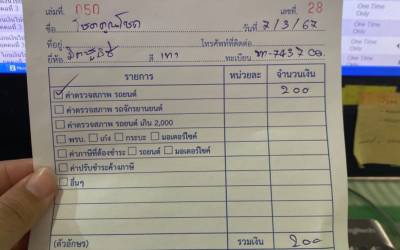 เล่มที่ 050 เลขที่ 28
ชื่อ โชคคูณโชค วันที่ 7/3/67
โทรศัพท์ที่ติดต่อ
ยี่ห้อ มิตซูบิชิ สี เทา ทะเบียน 7437
รายการ หน่วยละ จำนวนเงิน
ค่าตรวจสภาพ รถยนต์ 200
ค่าตรวจสภาพ รถจักรยานยนต์
ค่าตรวจสภาพ รถยนต์ เกิน 2,000
พรบ. เก๋ง กระบะ มอเตอร์ไซค์
ค่าภาษีที่ต้องชำระ รถยนต์ มอเตอร์ไซค์
ค่าปรับชำระค้างภาษี
อื่นๆ
(ตัวอักษร) รวมเงิน 200
One Time
Only
One Time
Only